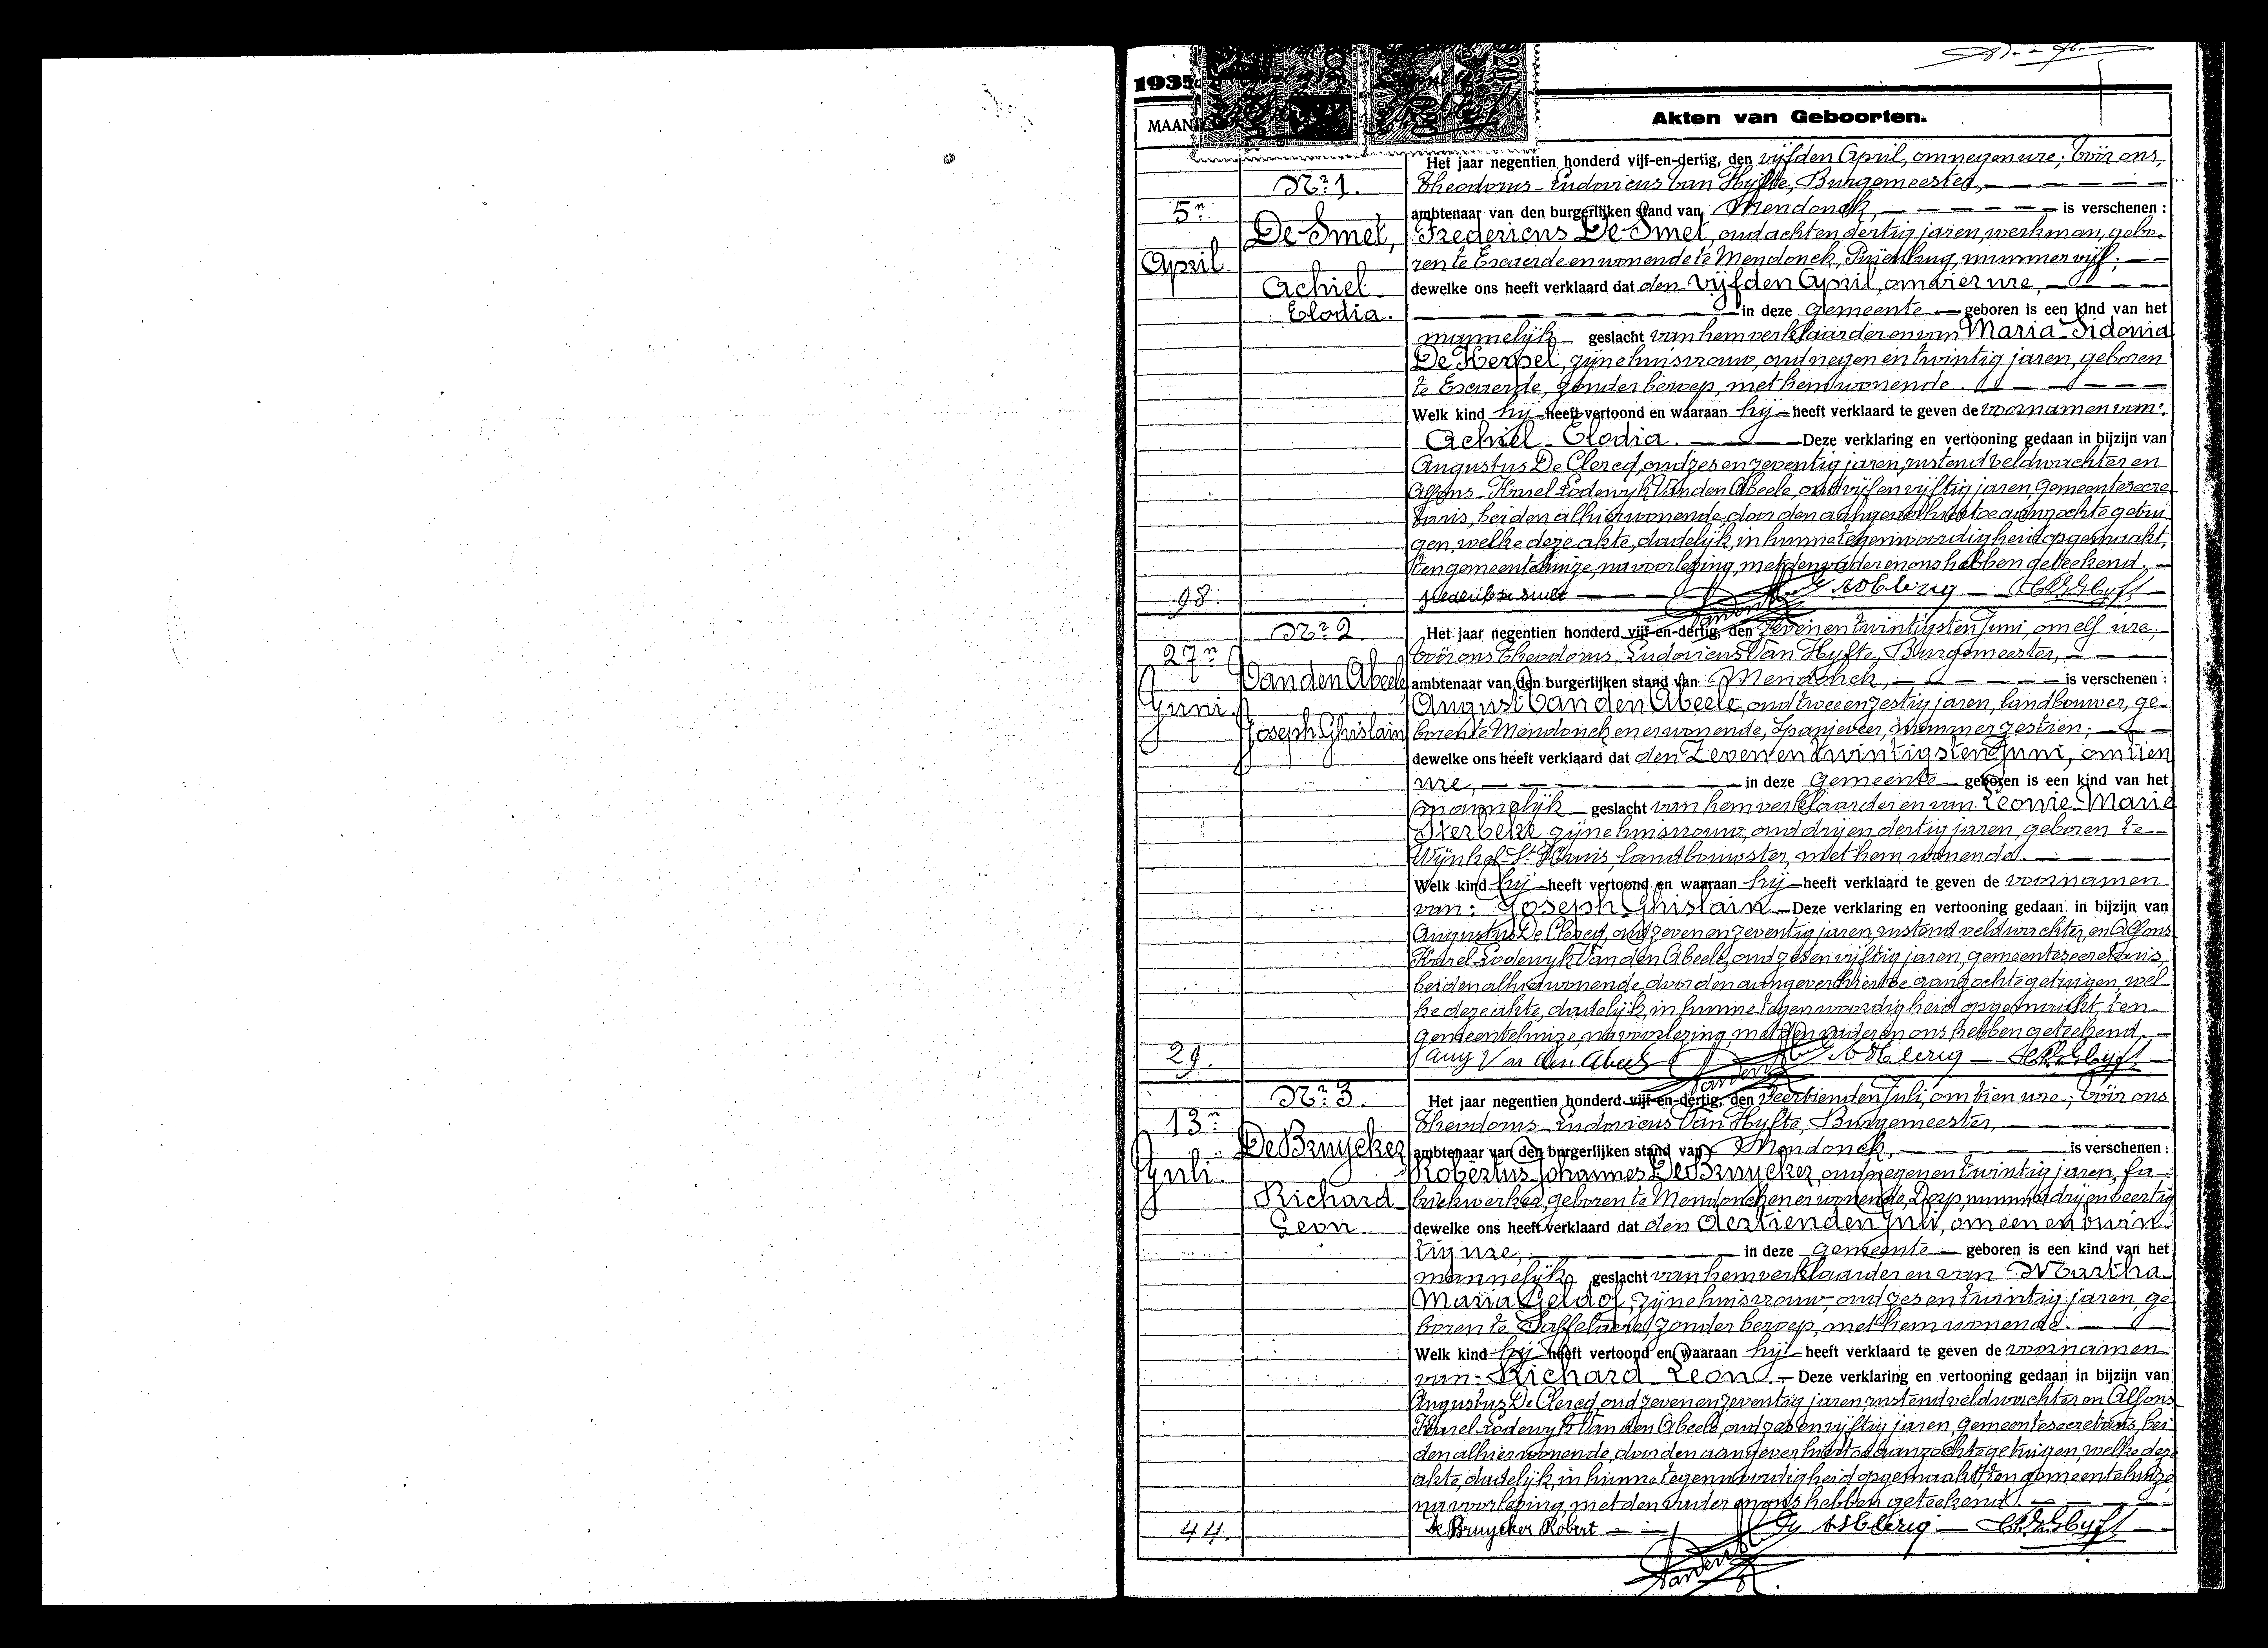 1935
MAAN
Akten van Geboorten.
Het jaar negentien honderd vijf-en-dertig, den vijfden April, om negen ure, vóór ons,
Nr 1.
Theodorus-Ludovicus Van Hyfte, Burgemeester,
5n
ambtenaar van den burgerlijken stand van Mendonck, is verschenen :
De Smet,
Fredericus De Smet, oud acht en dertig jaren, werkman, gebo-
April.
ren te Exaerde en wonende te Mendonck, nummer vijf;
Achiel
dewelke ons heeft verklaard dat den vijfden April, om vier ure,
Elodia.
in deze Gemeente geboren is een kind van het
mannelijk geslacht van hem verklaarder en van Maria-Sidonia
De Kerpel, zijne huisvrouw, oud negen en twintig jaren, geboren
te Exaerde, zonder beroep, met hem wonende.
Welk kind hij heeft vertoond en waaraan hij heeft verklaard te geven de voornamen van:
Achiel-Elodia. Deze verklaring en vertooning gedaan in bijzijn van
Augustus De Clercq, oud zes en zeventig jaren, rustend veldwachter en
Alfons-Karel-Lodewyk Van den Abeele, oud vijf en vijftig jaren, gemeentesecre-
taris, beiden alhier wonende, door den aangever hiertoe aanzochte getui-
gen, welke deze akte, dadelijk, in hunne tegenwoordigheid opgemaakt,
ten gemeentehuize, na voorlezing, met den vader en ons hebben geteekend.
98.
Nr 2
Het jaar negentien honderd vijf-en-dertig, den zeven en twintigsten Juni, om elf ure,
27n
vóór ons Theodorus-Ludovicus Van Hyfte, Burgemeester,
Van den Abeele
ambtenaar van den burgerlijken stand van Mendonck, is verschenen :
Juni.
August Van den Abeele, oud twee en zestig jaren, landbouwer, ge-
Joseph Ghislain
boren te Mendonck en er wonende, Spanjeveer, nummer zestien;
dewelke ons heeft verklaard dat den Zeven en twintigsten Juni, om tien
ure, in deze Gemeente geboren is een kind van het
mannelijk geslacht van hem verklaarder en van Leonie-Marie
Sterbeke, zijne huisvrouw, oud drij en dertig jaren, geboren te
Wynkel-St Kruis, landbouwster, met hem wonende.
Welk kind hij heeft vertoond en waaraan hij heeft verklaard te geven de voornamen
van: Joseph Ghislain. Deze verklaring en vertooning gedaan in bijzijn van
Augustus De Clercq, oud zeven en zeventig jaren, rustend veldwachter, en Alfons
Karel-Lodewyk Van den Abeele, oud zes en vijftig jaren, gemeentesecretaris,
beiden alhier wonende, door den aangever hiertoe aanzochte getuigen, wel-
ke deze akte, dadelijk, in hunne tegenwoordigheid opgemaakt, ten
gemeentehuize, na voorlezing, met den vader en ons hebben geteekend.
29.
Aug Van den Abeele
Nr 3
Het jaar negentien honderd vijf-en-dertig, den veertienden Juli, om tien ure, vóór ons
13n
Theodorus-Ludovicus Van Hyfte, Burgemeester,
De Bruycker
ambtenaar van den burgerlijken stand van Mendonck, is verschenen :
Juli.
Robertus-Johannes De Bruycker, oud negen en twintig jaren, fa-
Richard
briekwerker, geboren te Mendonck en er wonende, Dorp, nummer drij en veertig
Leon
dewelke ons heeft verklaard dat den dertienden Juli, om een en twin-
tig ure, in deze Gemeente geboren is een kind van het
mannelijk geslacht van hem verklaarder en van Martha-
Maria Geldof, zijne huisvrouw, oud zes en twintig jaren, ge-
boren te Saffelaere, zonder beroep, met hem wonende.
Welk kind hij heeft vertoond en waaraan hij heeft verklaard te geven de voornamen
van: Richard-Leon. Deze verklaring en vertooning gedaan in bijzijn van
Augustus De Clercq, oud zeven en zeventig jaren, rustend veldwachter en Alfons
Karel-Lodewyk Van den Abeele, oud zes en vijftig jaren, gemeentesecretaris, bei-
den alhier wonende, door den aangever hiertoe aanzochte getuigen, welke deze
akte, dadelijk, in hunne tegenwoordigheid opgemaakt, ten gemeentehuize,
na voorlezing, met den vader en ons hebben geteekend.
44.
De Bruycker Robert